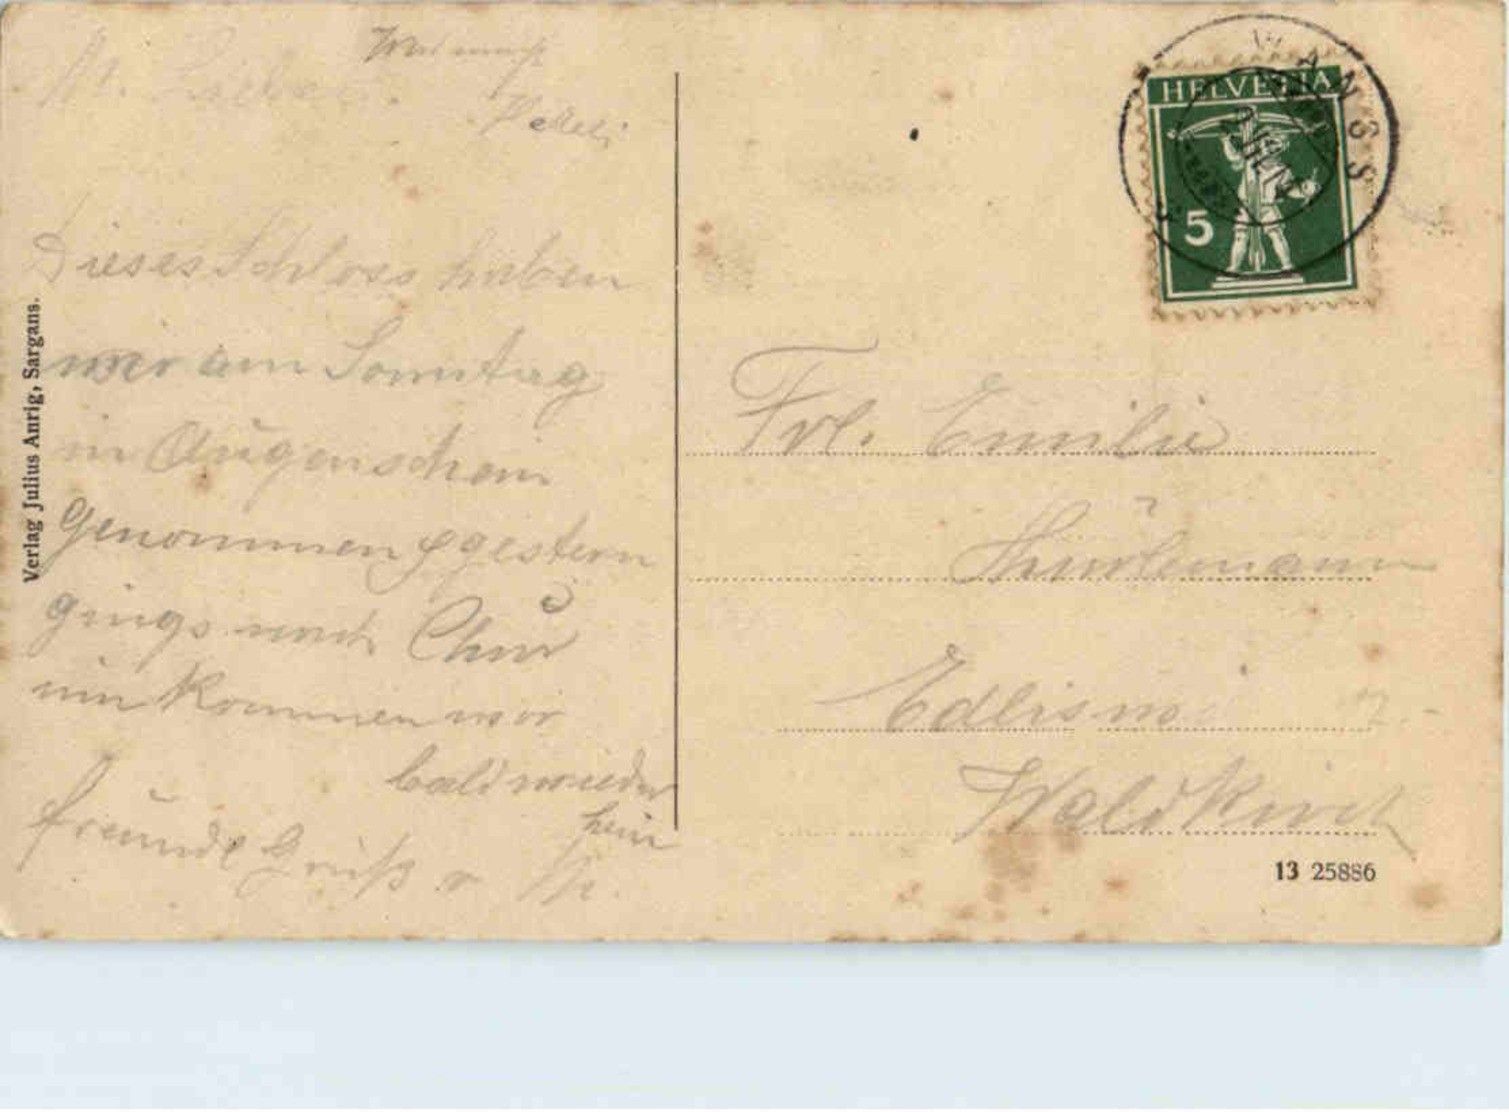 M. Lieben.
Was macht
Dieses Schloss haben
wir am Sonntag
in Augenschein
genommen & gestern
gings nach Chur
nun kommen wir
bald wieder
heim
freundl Gruß v
Verlag Julius Anrig, Sargans.
HELVETIA
5
Frl. Emilie
Hürlemann
Edliswil
Waldkirch
13 25886